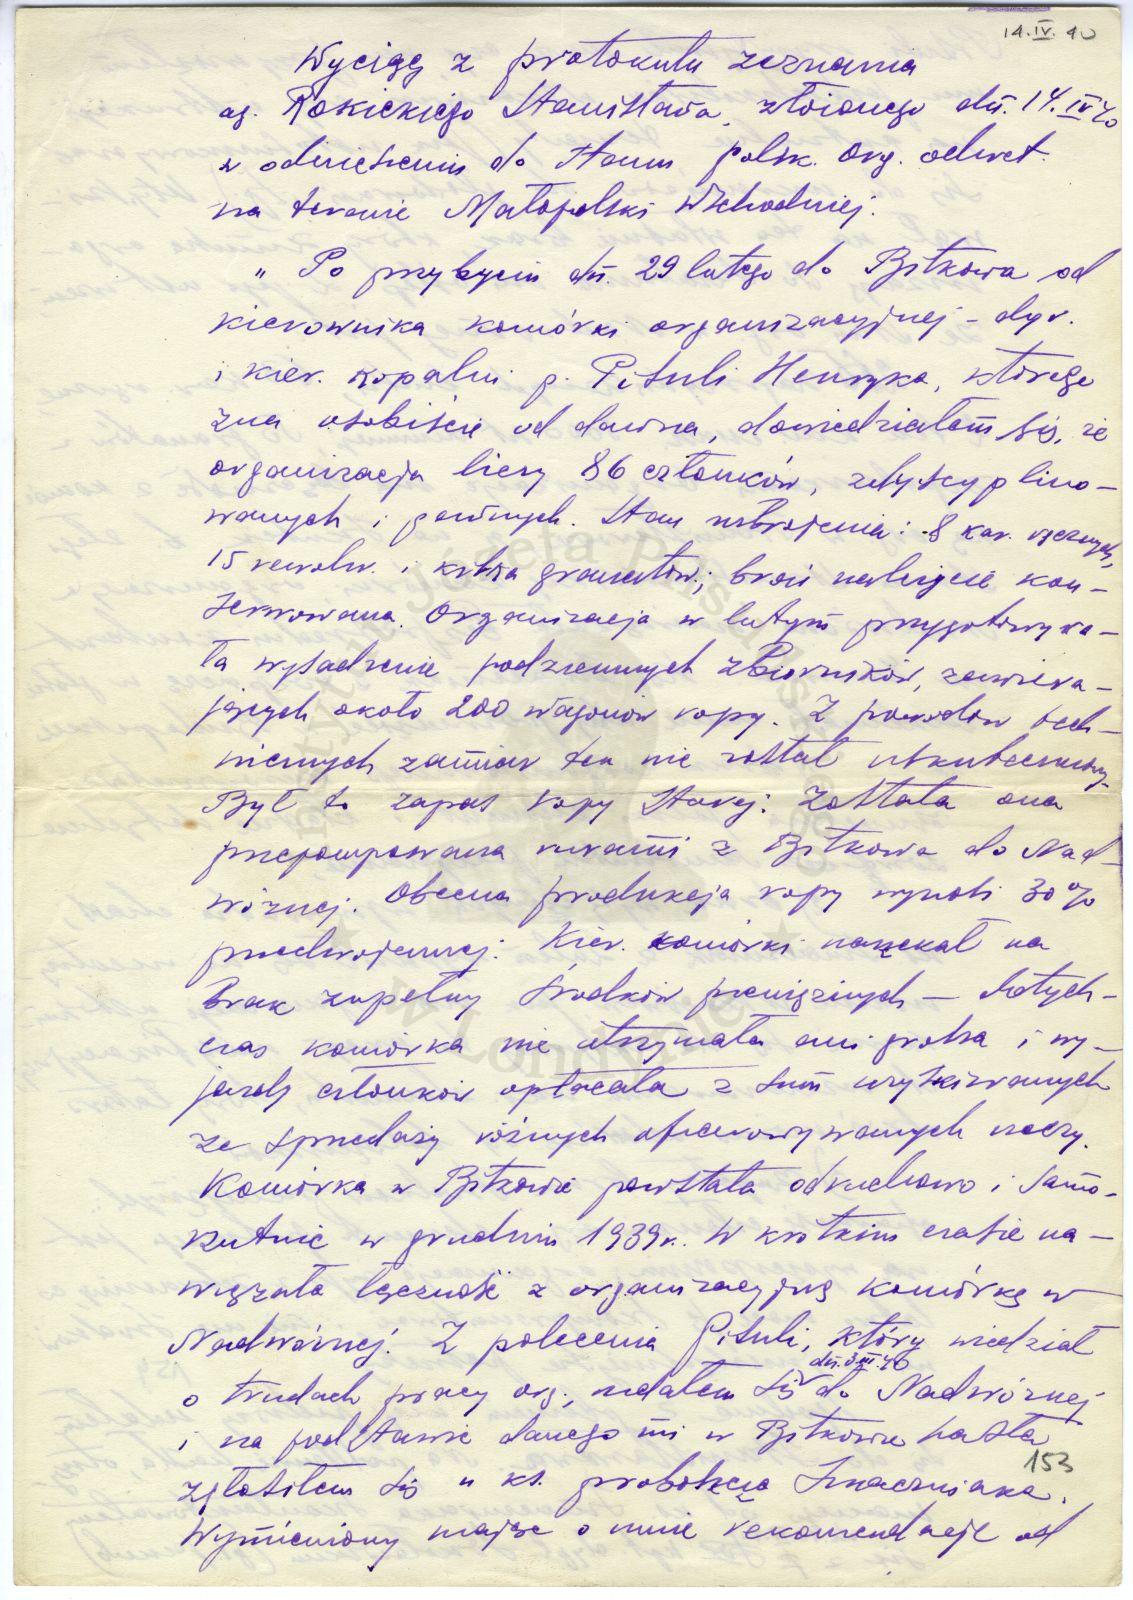 14.IV.40
Wyciąg z protokułu zeznania
ag. Rokickiego Stanisława, złożonego dn. 14.IV 40
w odniesieniu do stanu polsk. org. odwet.
na terenie Małopolski Wschodniej.
„Po przybyciu dn. 29 lutego do Bitkowa od
kierownika komórki organizacyjnej – dyr.
i kier. kopalni p. Pituli Henryka, którego
zna osobiście od dawna, dowiedziałem się, że
organizacja liczy 86 członków, zdyscyplino-
wanych i pewnych. Stan uzbrojenia: 8 kar. ręcznych,
15 rewolw. i kilka granatów; broń należycie kon-
serwowana. Organizacja w lutym przygotowywa-
ła wysadzenie podziemnych zbiorników, zawiera-
jących około 200 wagonów ropy. Z powodów tech-
nicznych zamiar ten nie został uskuteczniony.
Był to zapas ropy starej. Została ona
przepompowana rurami z Bitkowa do Nad-
wórnej. Obecna produkcja ropy wynosi 30%
przedwojennej. Kier. komórki narzekał na
brak zupełny środków pieniężnych – dotych-
czas komórka nie otrzymała ani grosza i wy-
jazdy członków opłacała z sum uzyskiwanych
ze sprzedaży różnych ofiarowywanych rzeczy.
Komórka w Bitkowie powstała odruchowo i samo-
rzutnie w grudniu 1939 r. W krótkim czasie na-
wiązała łączność z organizacyjną komórką w
Nadwórnej. Z polecenia Pituli, który wiedział
dn. 3.III.40
o trudach pracy org., udałem się do Nadwórnej
i na podstawie danego mi w Bitkowie hasła
153
zgłosiłem się u ks. proboszcza Smaczniaka.
Wymieniony mając o mnie rekomendacje od